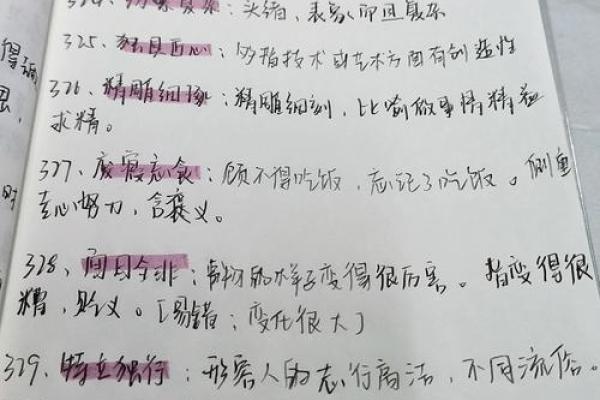 324、纷繁复杂：头绪、表象多而且复杂
325、独具匠心：多指技术或艺术方面有创造性
得
326、精雕细琢：精雕细刻，比喻做事情精益
求精。
327、废寝忘食：顾不得吃饭，忘记了吃饭。侧重
专心努力，含褒义。
时
328、面目全非：事物的样子变得很厉害。指变得很
糟，贬义。[易错：变化很大]
329、特立独行：形容人的志行高洁，不同流俗。